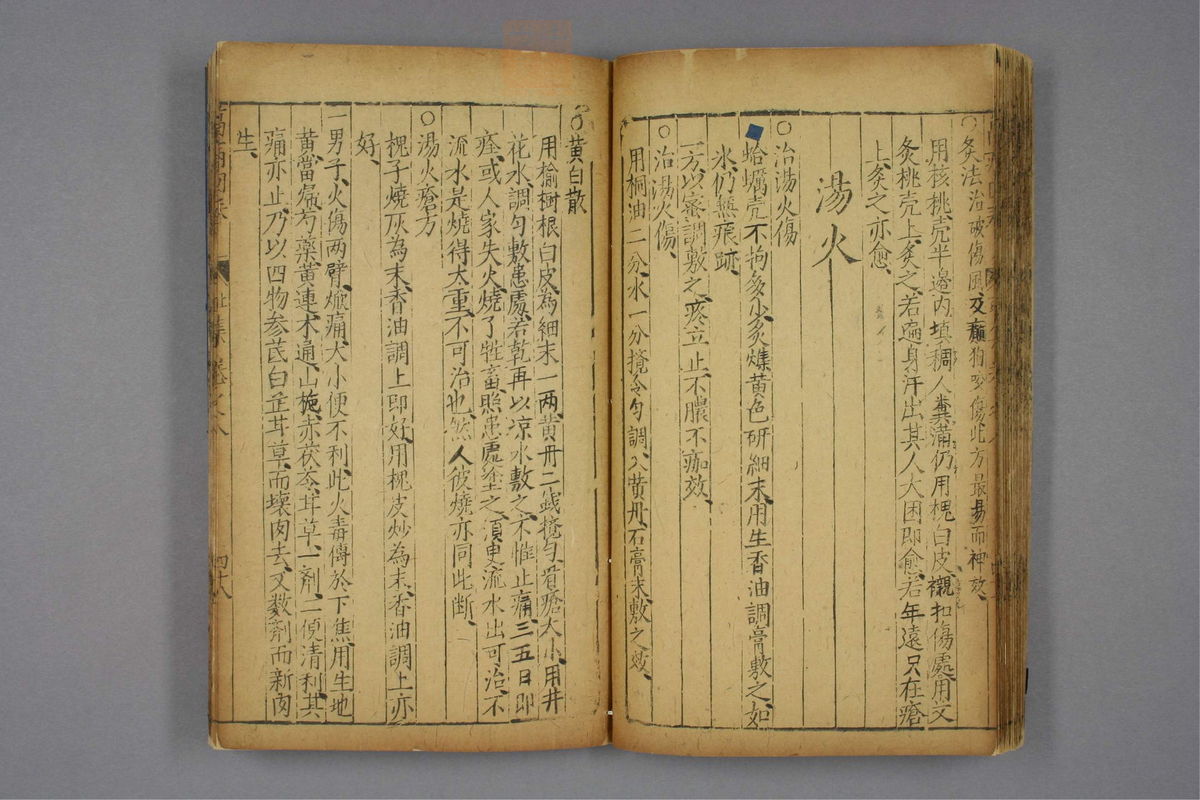 ○灸法治破傷風及癲狗咬傷此方最易而神效
用核桃壳半邊内填稠人糞滿仍用槐白皮襯扣傷處用艾
灸桃壳上灸之若遍身汗出其人大困即愈若年遠只在瘡
上灸之亦愈
湯火
○治湯火傷
蛤蠣壳不拘多少炙爍黄色研細末用生香油調膏敷之如
氷仍無痕跡
一方以蜜調敷之疼立止不膿不痂效
○治湯火傷
用桐油二分水一分攪令匀調入黄丹石膏末敷之效
○黄白散
用榆樹根白皮為細末一两黄丹二錢攪匀看瘡大小用井
花水調匀敷患處若乾再以凉水敷之不惟止痛三五日即
痊或人家失火燒了牲畜照患處塗之須臾流水出可治不
流水是燒得太重不可治也然人彼燒亦同此断
○湯火瘡方
槐子燒灰為末香油調上即好用槐皮炒為末香油調上亦
好
一男子火傷两臂㷔痛大小便不利此火毒傳於下焦用生地
黄當歸芍藥黄連木通山梔赤茯苓甘草一剤二便清利其
痛亦止乃以四物參芪白芷甘草而壊肉去又數剤而新肉
生
集 卷之八 四十八